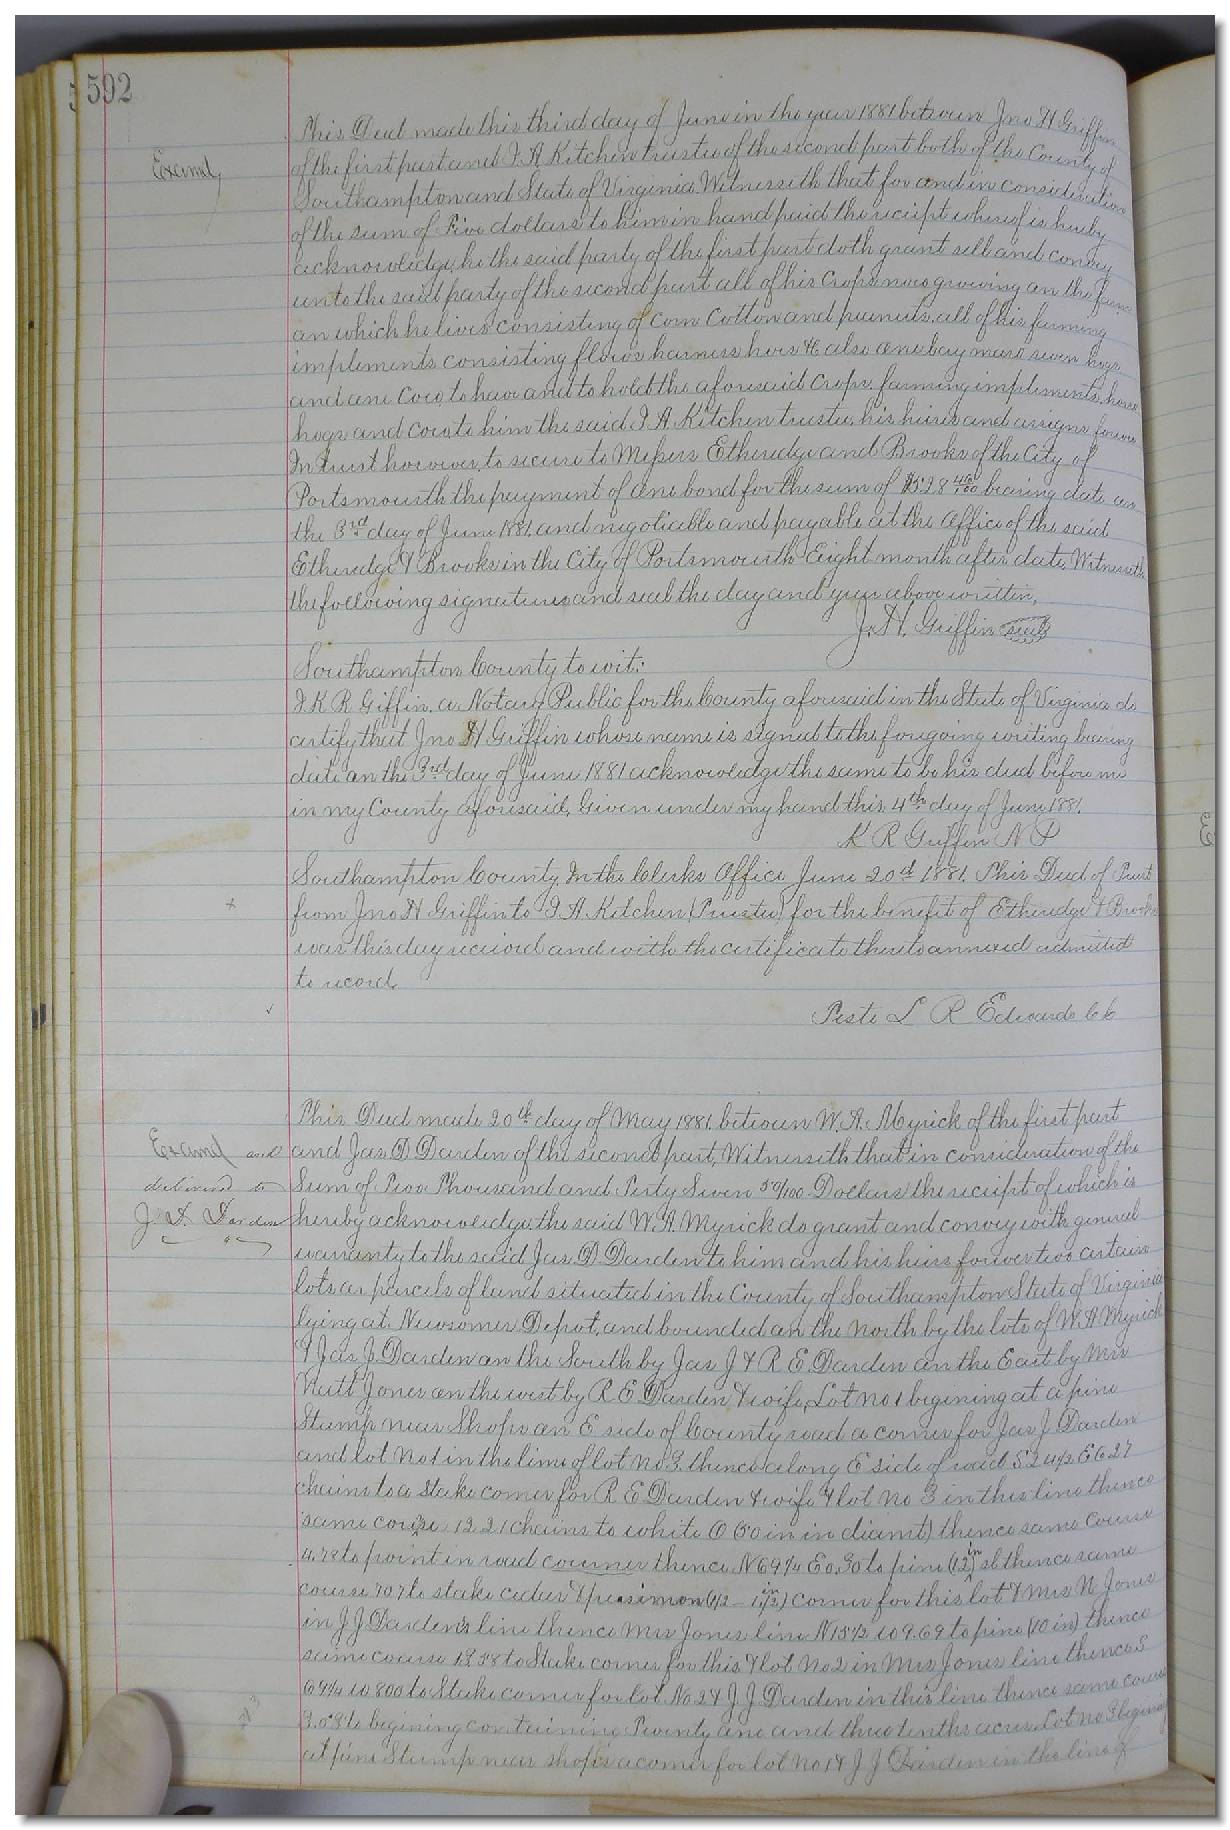 592
This Deed made this third day of June in the year 1881 between Jno H Griffin
Examd,
of the first part and J. A Kitchen trustee of the second part both of the County of
Southampton and State of Virginia Witnesseth that for and in consideration
of the sum of Five dollars to him in hand paid the receipt whereof is hereby
acknowledge, he the said party of the first part doth grant sell and convey
unto the said party of the second part all of his Crops now growing on the farm
on which he lives consisting of Corn Cotton and peanuts. all of his farming
implements consisting plows harness hoes &c also one bay mare seven hogs
and one Cow, to have and to hold the aforesaid Crops. farming implements, horse
hogs and cow to him the said J. A. Kitchen trustee, his heirs and assigns forever
In trust however, to secure to Messrs Etheredge and Brooks of the City of
Portsmouth the payment of one bond for the sum of $528 40/100 bearing date on
the 3rd day of June 1881, and negotiable and payable at the Office of the said
Etheredge & Brooks in the City of Portsmouth Eight month after date, Witnesseth
the following signatures and seal the day and year above written,
J. H. Griffin seal
Southampton County to wit:
I K R Giffin, a Notary Public for the County aforesaid in the State of Virginia do
certify that Jno H Griffin whose name is signed to the foregoing writing bearing
date on the 3rd day of June 1881 acknowledge the same to be his deed before me
in my County aforesaid, Given under my hand this 4th day of June 1881.
K R Griffin N P
Southampton County, In the Clerks Office June 20d 1881. This Deed of Trust
from Jno H Griffin to J. A. Kitchen (Trustee) for the benefit of Etheredge & Brooks
was this day received and with the certificate thereto annexed admitted
to record,
Teste L R Edwards Ck
This Deed made 20th day of May 1881, between W. A. Myrick of the first part
Examd and
and Jas D Darden of the second part, Witnesseth that in consideration of the
delivered to
Sum of Two Thousand and Forty Seven 50/100 Dollars the receipt of which is
J. D. Darden
hereby acknowledge, the said W. A Myrick do grant and convey with general
warranty to the said Jas. D. Darden to him and his heirs forever two certain
lots or parcels of land situated in the County of Southampton State of Virginia
lying at Newsomes Depot, and bounded on the North by the lots of W. A Myrick
& Jas J. Darden on the South by Jas J & R E. Darden on the East by Mrs
Jones on the west by R E Darden & wife, Lot no 1 begining at a pine
Stump near Shops on E side of County road a corner for Jas J Darden
and lot No 1 in the line of lot No 3. thence along E side of road S 24 1/2 E 6.27
chains to a stake corner for R E Darden & wife & lot No 3 in this line thence
same course 12.21 chains to white O (50 in in diamt) thence same Course
4.78 to point in road courner thence N 69 3/4 E 0.30 to pine (12 in) sl thence same
course 7.07 to stake ceder & persimon (1/2 - 1 in/2) corner for this lot & Mrs N Jones
in J J Darden's line thence Mrs Jones line N 15 1/2 W 9.69 to pine (10 in) thence
same course 12.58 to Stake corner for this & lot No 2 in Mrs Jones line thence S
69 1/4 W 8.00 to Stake corner for lot No 2 & J J Darden in this line thence same course
3.08 to begining containing Twenty one and three tenths acres, Lot no 3 begining
at pine Stump near shops a corner for lot No 1 & J J Darden in the line of